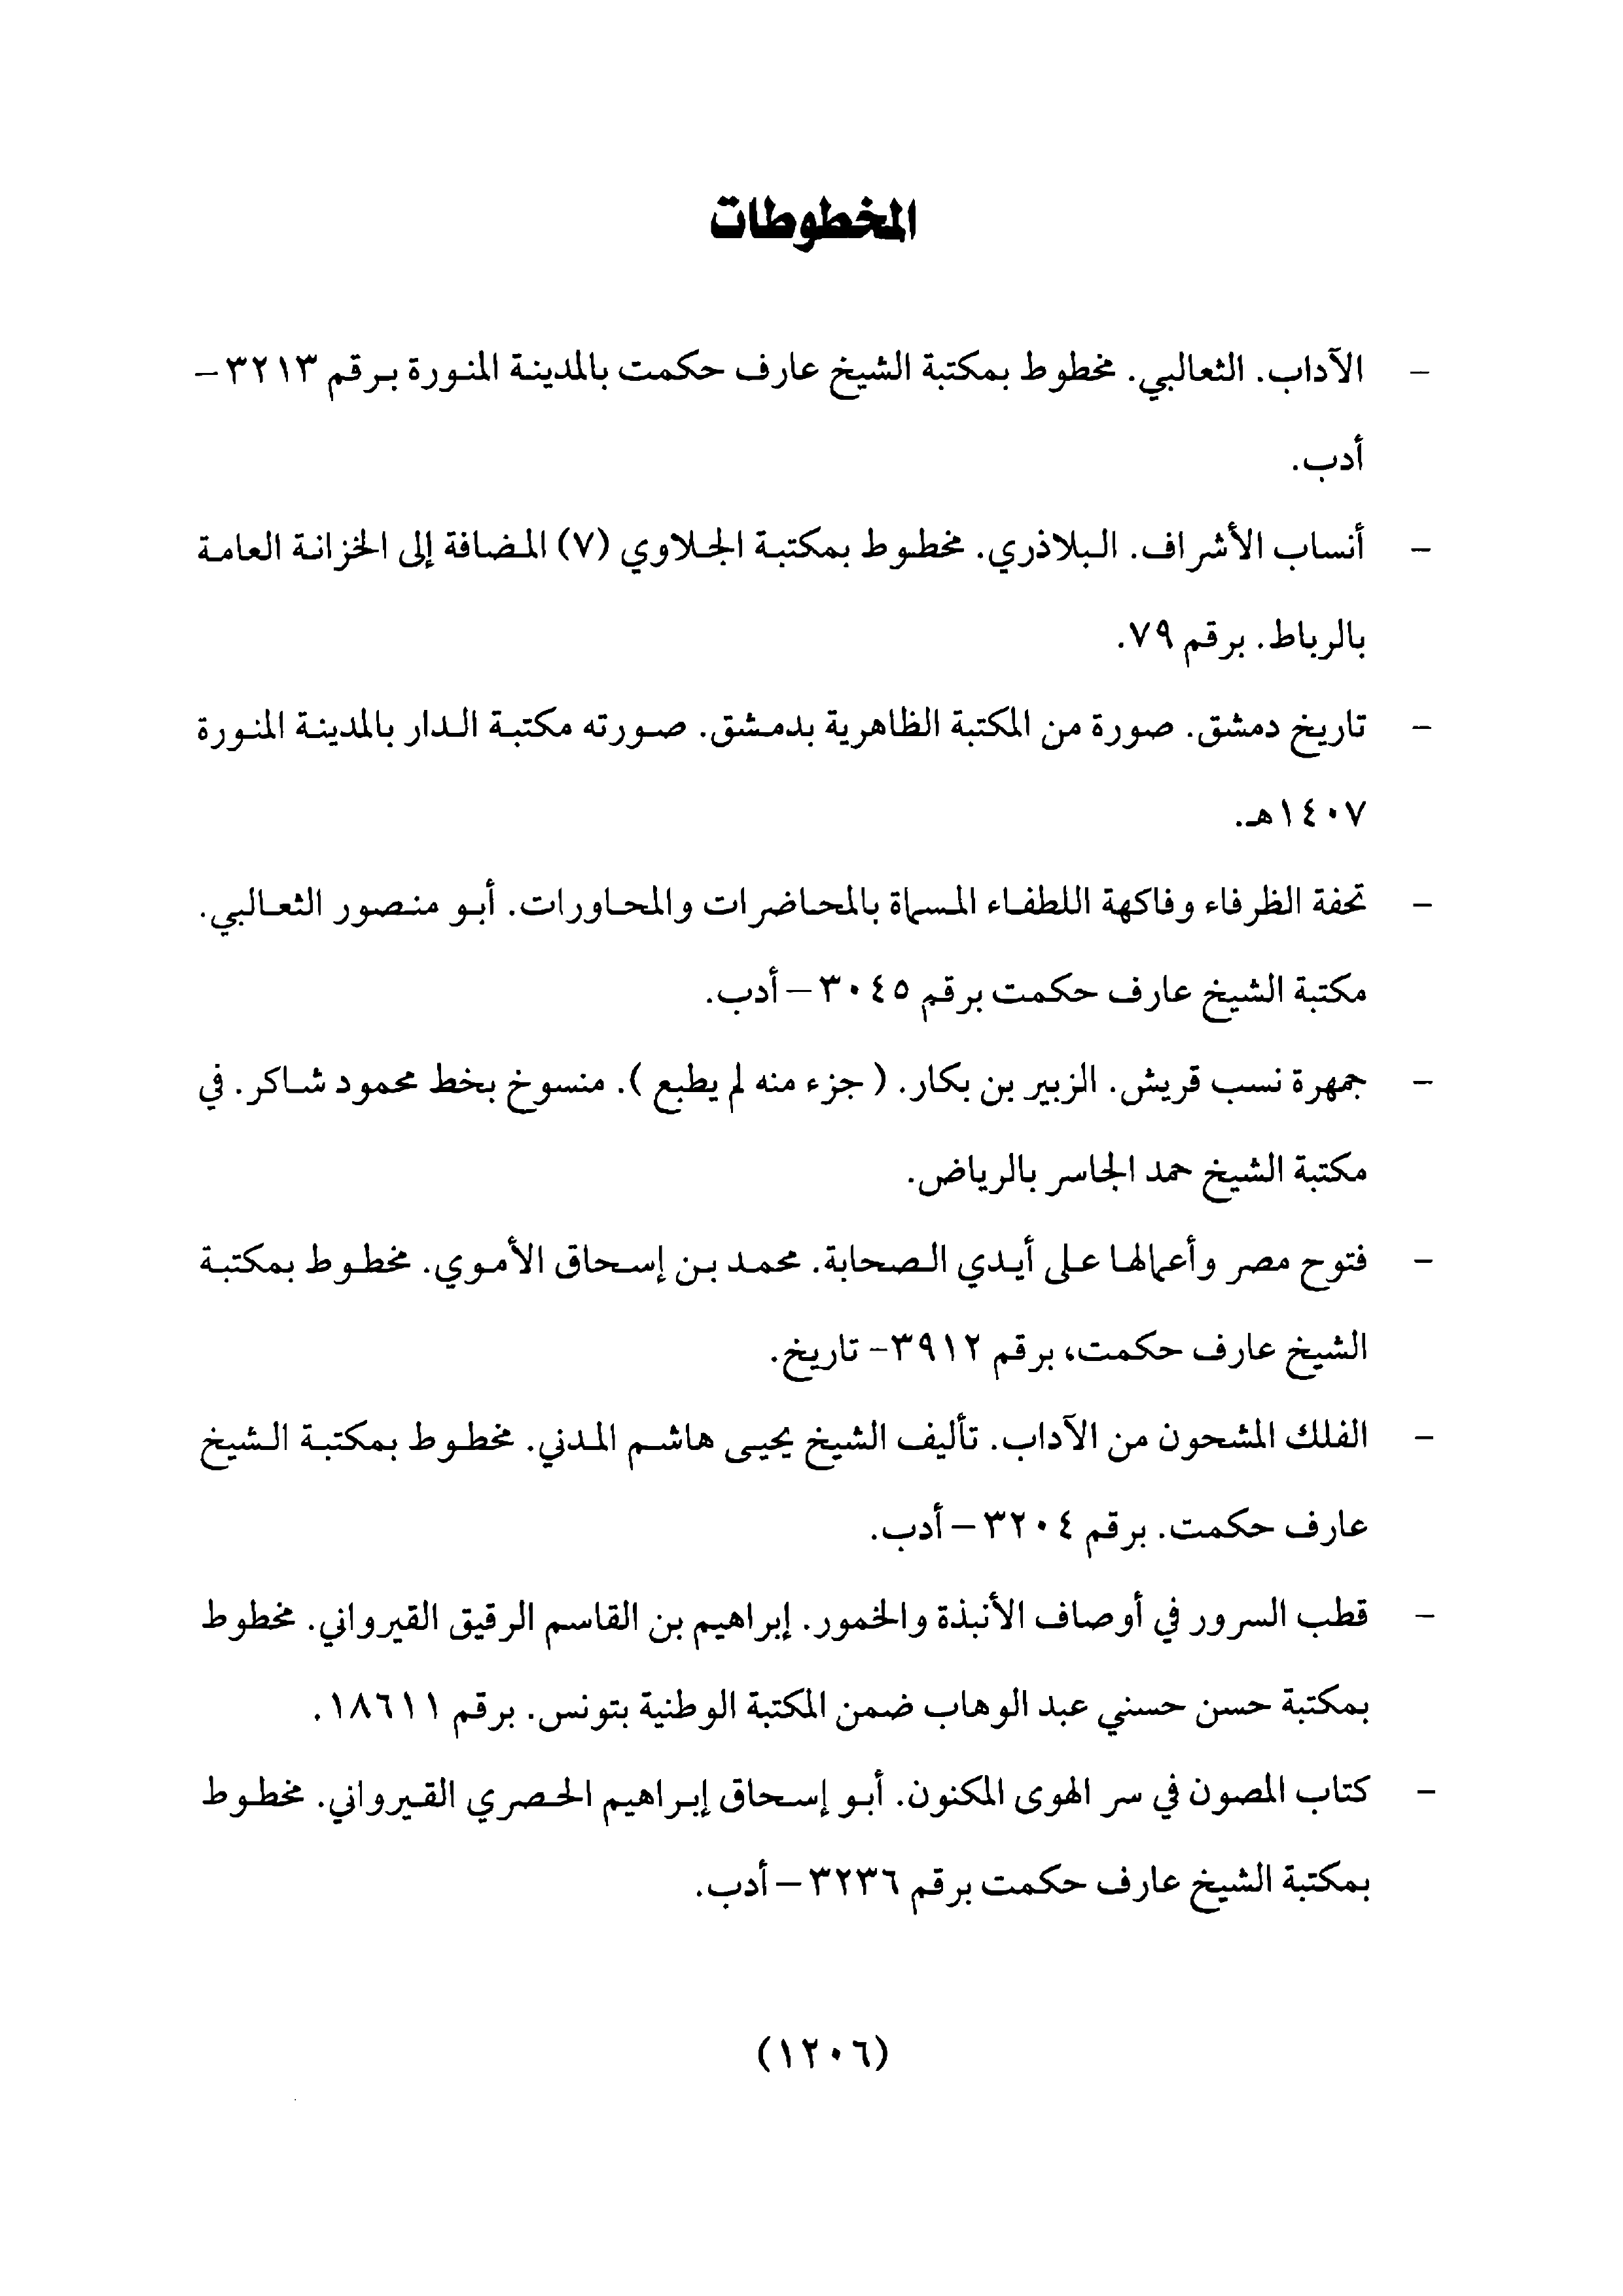 المخطوطات
- الآداب. الثعالبي. مخطوط بمكتبة الشيخ عارف حكمت بالمدينة المنورة برقم ٣٢١٣ –
أدب.
- أنساب الأشراف. البلاذري. مخطوط بمكتبة الجلاوي (٧) المضافة إلى الخزانة العامة
بالرباط. برقم ٧٩.
- تاريخ دمشق. صورة من المكتبة الظاهرية بدمشق. صورته مكتبة الدار بالمدينة المنورة
١٤٠٧هـ.
- تحفة الظرفاء وفاكهة اللطفاء المسماة بالمحاضرات والمحاورات. أبو منصور الثعالبي.
مكتبة الشيخ عارف حكمت برقم ٣٠٤٥ – أدب.
- جمهرة نسب قريش. الزبير بن بكار. ( جزء منه لم يطبع ). منسوخ بخط محمود شاكر. في
مكتبة الشيخ حمد الجاسر بالرياض.
- فتوح مصر وأعمالها على أيدي الصحابة. محمد بن إسحاق الأموي. مخطوط بمكتبة
الشيخ عارف حكمت، برقم ٣٩١٢- تاريخ.
- الفلك المشحون من الآداب. تأليف الشيخ يحيى هاشم المدني. مخطوط بمكتبة الشيخ
عارف حكمت. برقم ٣٢٠٤ – أدب.
- قطب السرور في أوصاف الأنبذة والخمور. إبراهيم بن القاسم الرقيق القيرواني. مخطوط
بمكتبة حسن حسني عبد الوهاب ضمن المكتبة الوطنية بتونس. برقم ١٨٦١١.
- كتاب المصون في سر الهوى المكنون. أبو إسحاق إبراهيم الحصري القيرواني. مخطوط
بمكتبة الشيخ عارف حكمت برقم ٣٢٣٦ – أدب.
(١٢٠٦)